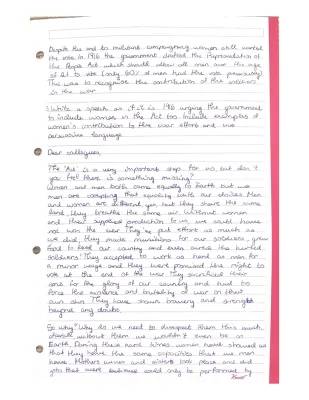 Despite the end to militant campaigning women still wanted
the vote. In 1916 the government drafted the Representation of
the People Act which should allow all men over the age
of 21 to vote (only 60% of men had the vote previously)
This was to recognise the contribution of the soldiers
in the war
Write a speech as if it is 1916 urging the government
to include women in the Act too. Include examples of
women's contribution to the war effort and use
persuasive language
Dear colleagues,
The 'Act' is a very important step for us, but don't
you feel there is something missing?
women and men both came equally to Earth but we
men are completing that equality with our choices. Men
and women are different yes but they share the same
land, they breathe the same air. Without women
and their supplies production to us, we would have
not won the war. They've put effort as much as
we did. They made munitions for our soldiers, grew
food to feed our country and even nursed the hurted
soldiers! They accepted to work as hard as men for
a minor wage and they were promised the right to
vote at the end of the war. They sacrificed their
for the glory of our country and had to
face the and brutality of war on their
own skin. They have shown bravery and strength
beyond any doubt.
So why? Why do we need to disrespect them this much,
without them we wouldn't even be on
Earth. During these hard times women have showed us
that they have the same capacities that we men
have. Mothers, women and sisters took place and did
jobs that were before could only be performed by